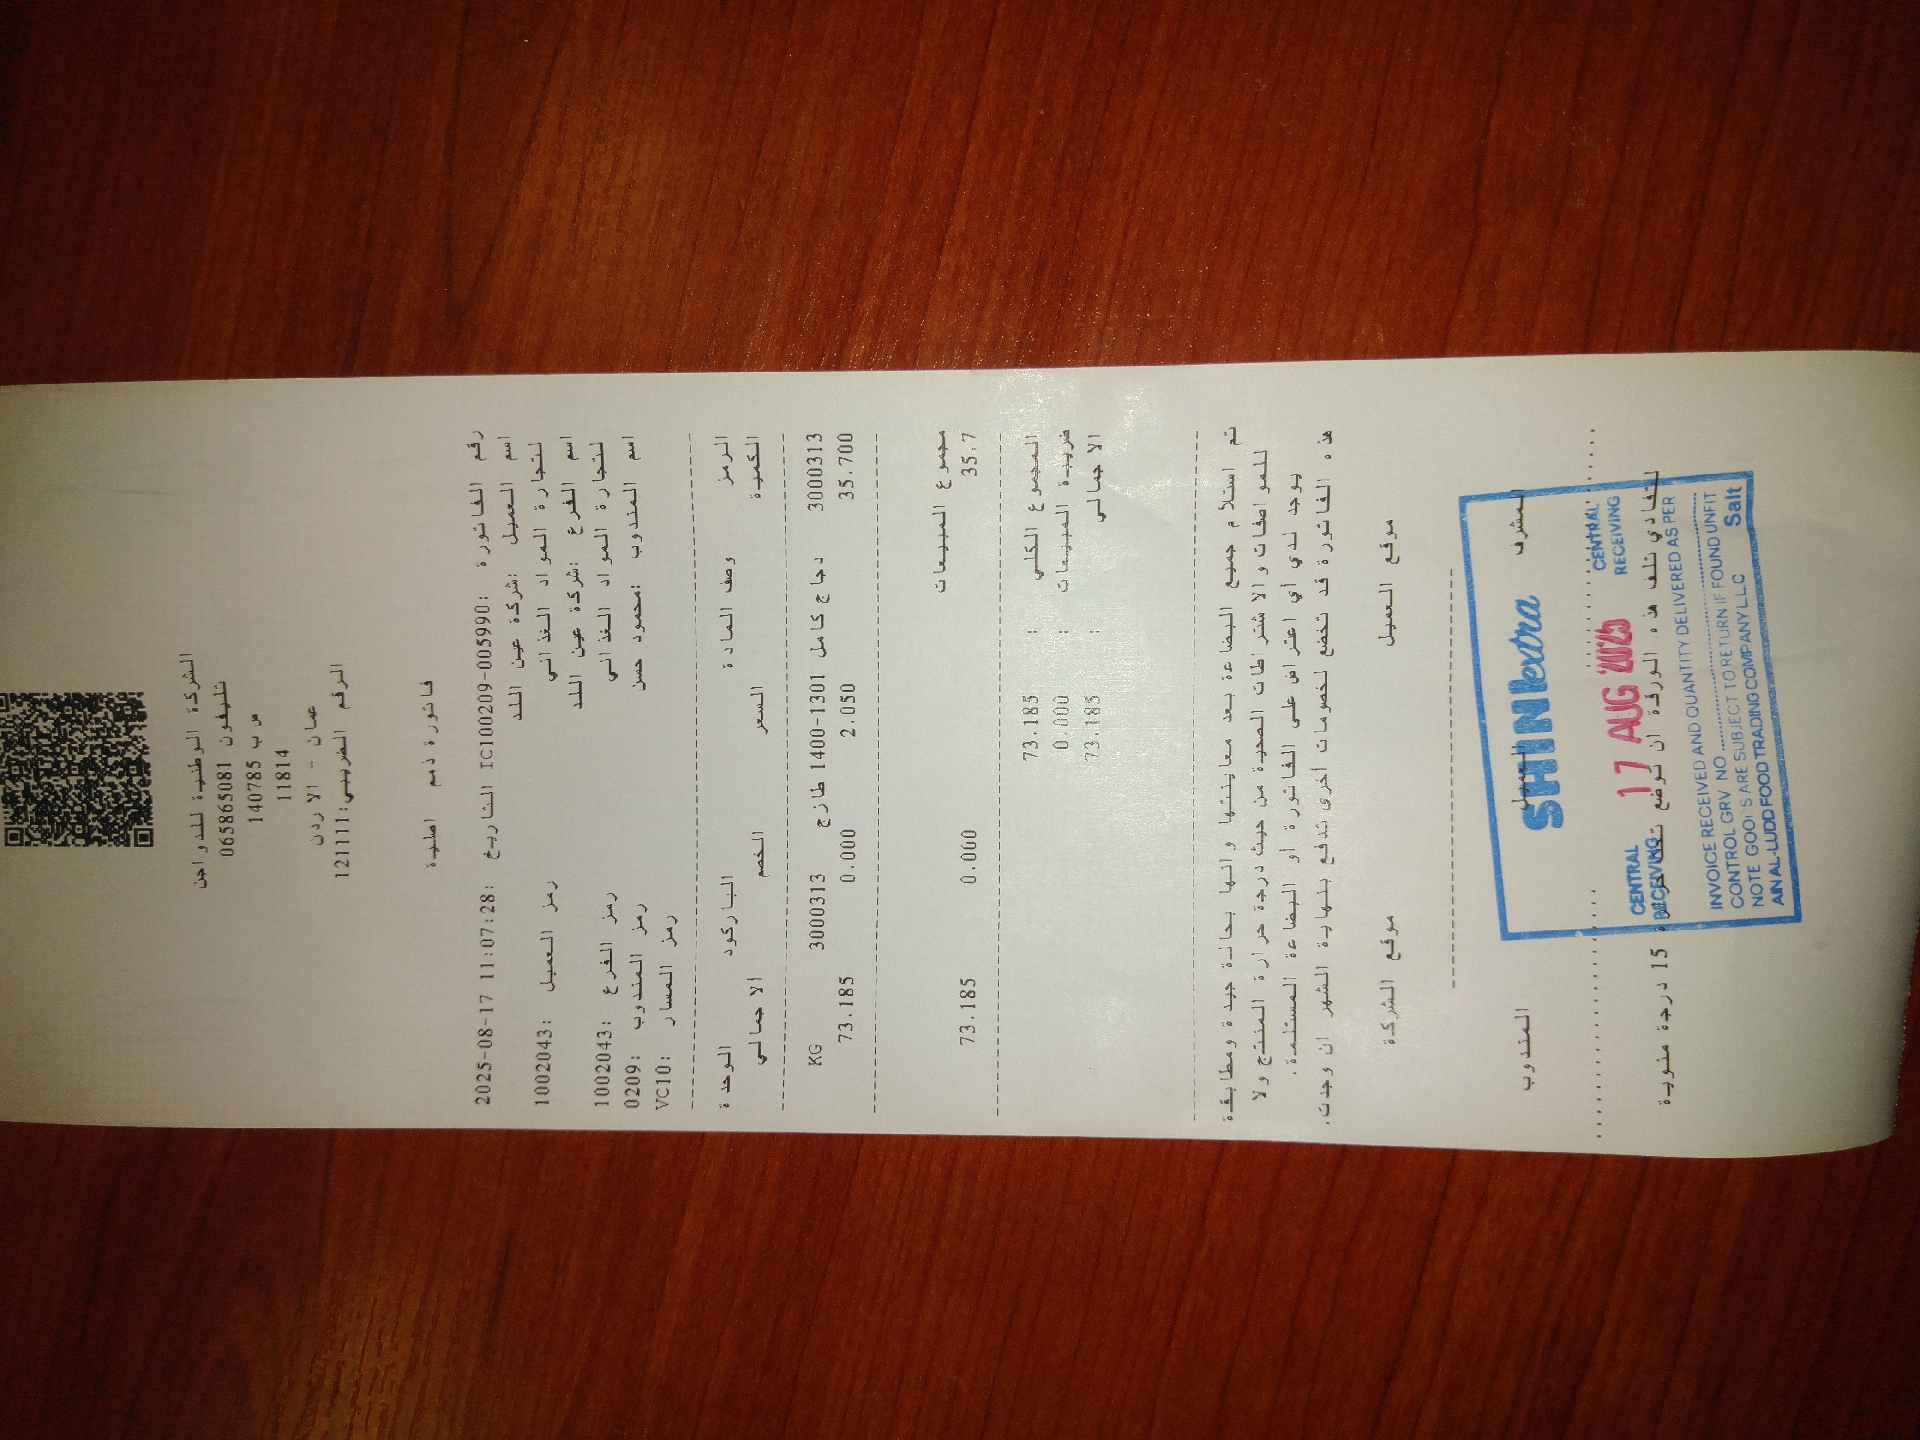 الشركة الوطنية للدواجن
تليفون 065865081
ص ب 140785
11814
عمان - الاردن
الرقم الضريبي:121111
فاتورة ذمم اصلية
رقم الفاتورة :IC100209-005990 التاريخ :2025-08-17 11:07:28
اسم العميل :شركة عين اللد
لتجارة المواد الغذائي رمز العميل :1002043
اسم الفرع :شركة عين اللد
لتجارة المواد الغذائي رمز الفرع :1002043
اسم المندوب :محمود حسن رمز المندوب :0209
رمز المسار :VC10
الرمز وصف المادة الباركود الوحدة
الكمية السعر الخصم الاجمالي
3000313 دجاج كامل 1301-1400 طازج 3000313 KG
35.700 2.050 0.000 73.185
مجموع المبيعات
35.7 0.000 73.185
المجموع الكلي : 73.185
ضريبة المبيعات : 0.000
الاجمالي : 73.185
تم استلام جميع البضاعة بعد معاينتها وانها بحالة جيدة ومطابقة
للمواصفات والاشتراطات الصحية من حيث درجة حرارة المنتج ولا
يوجد لدي أي اعتراض على الفاتورة أو البضاعة المستلمة.
هذه الفاتورة قد تخضع لخصومات أخرى تدفع بنهاية الشهر ان وجدت.
موقع العميل موقع الشركة
المشرف العميل المندوب
SHINI extra
CENTRAL RECEIVING 17 AUG 2025 CENTRAL RECEIVING
لتفادي تلف هذه الورقة ان توضع 15 درجة مئوية
INVOICE RECEIVED AND QUANTITY DELIVERED AS PER
CONTROL GRV NO
NOTE GOODS ARE SUBJECT TO RETURN IF FOUND UNFIT
AIN AL-LUDD FOOD TRADING COMPANY LLC Salt